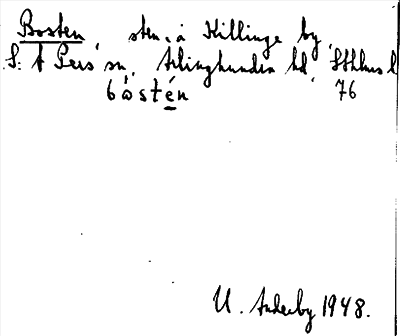 Bosten, sten, å Killinge by,
S:t Pers sn, Ärlinghundra hd, Sthlms l
båstén 76
U. Anderby 1948.